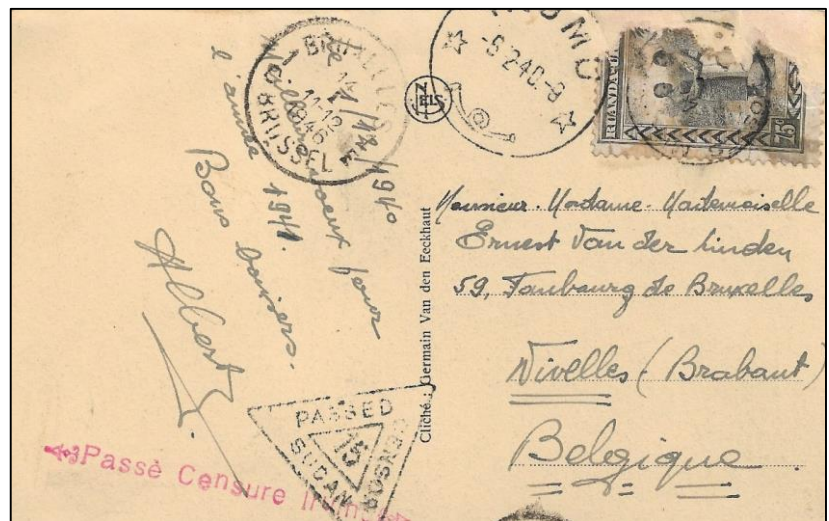 BRUXELLES
14
11-12
1946
BRUSSEL
-6.240.-9
NELS
RUANDA
75c
1/12/1940
Meilleurs voeux pour
l'année 1941.
Bons baisers.
Albert
Cliché : Germain Van den Eeckhaut
Monsieur. Madame. Mademoiselle
Ernest Van der Linden
59, Faubourg de Bruxelles
Nivelles (Brabant)
Belgique.
PASSED
CENSOR
SUDAN
15
Passè Censure